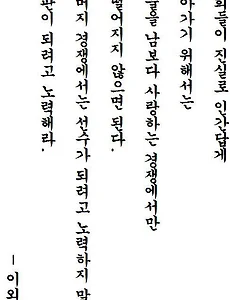 희들이 진실로 인간답게
아가기 위해서는
을 남보다 사랑하는 경쟁에서만
떨어지지 않으면 된다.
머지 경쟁에서는 선수가 되려고 노력하지 말
판이 되려고 노력해라.
– 이외